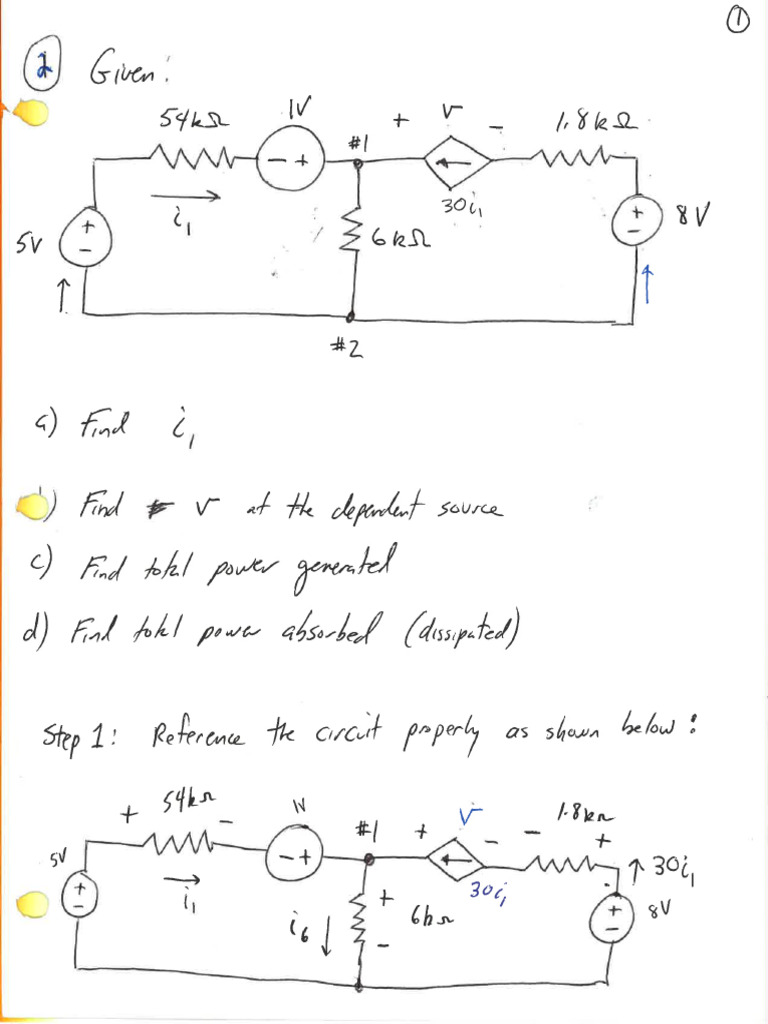 ①
② Given:
54kΩ 1V #1 + v - 1.8kΩ
- +
i₁ 30i₁
5V + - 6kΩ + - 8V
#2
a) Find i₁
b) Find v at the dependent source
c) Find total power generated
d) Find total power absorbed (dissipated)
Step 1: Reference the circuit properly as shown below:
+ 54kΩ - 1V #1 + v - - 1.8kΩ +
5V - + 30i₁
+ - i₁ 30i₁
i₆ + 6kΩ - + - 8V